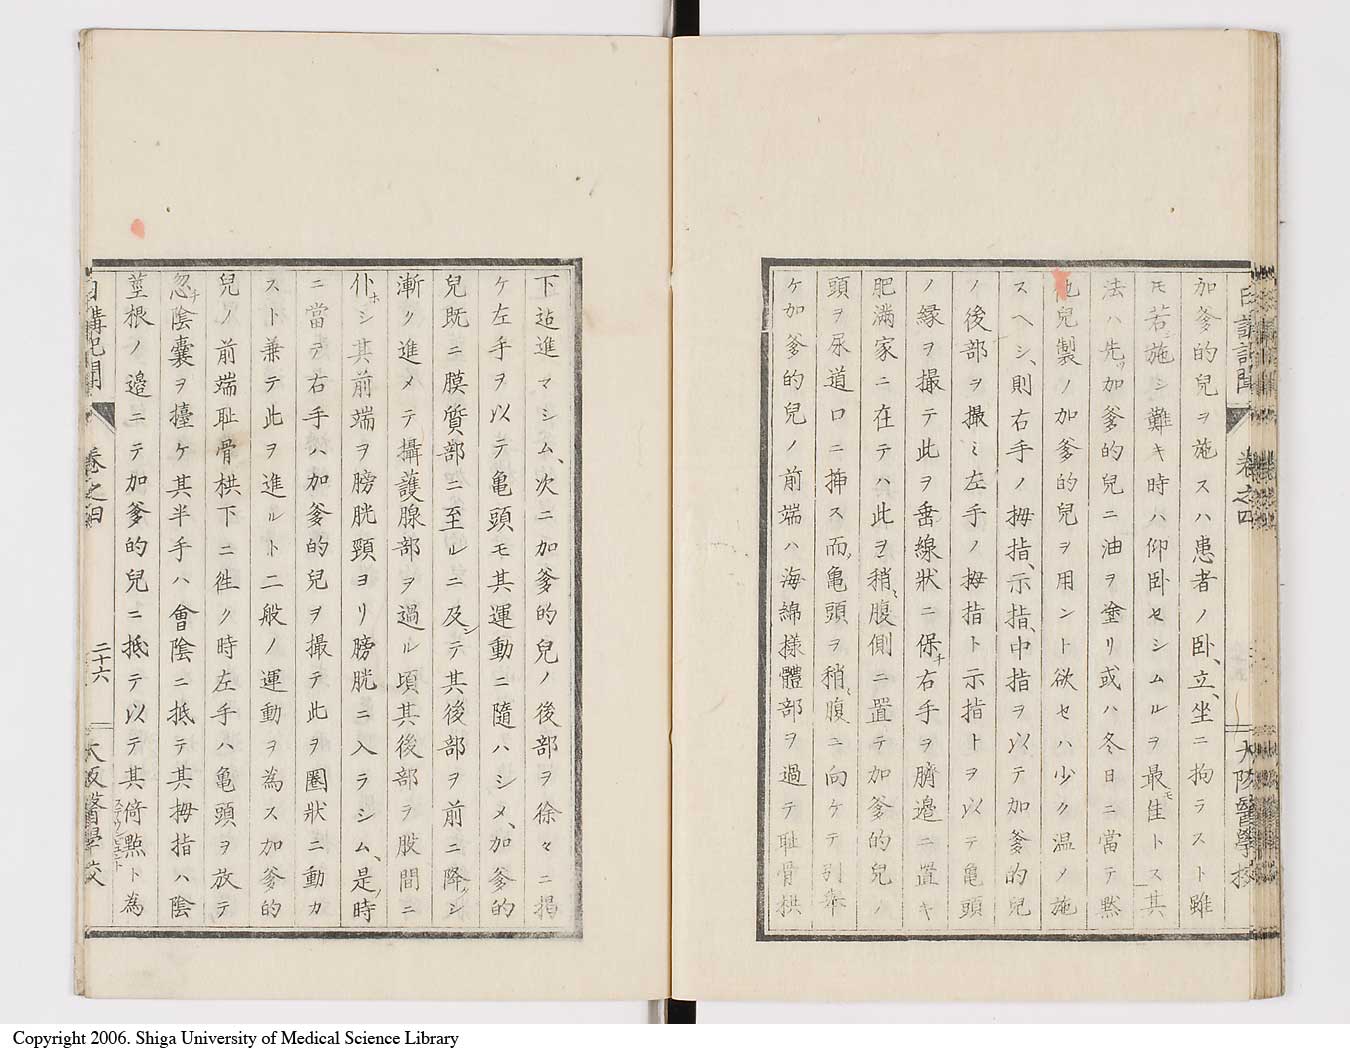 日講記聞 卷之四 大阪醫學校
加爹的兒ヲ施スハ患者ノ卧、立、坐ニ拘ラスト雖
モ若シ施シ難キ時ハ仰卧セシムルヲ最モ佳トス其
法ハ先ツ加爹的兒ニ油ヲ塗リ或ハ冬日ニ當テ黙
兒製ノ加爹的兒ヲ用ント欲セハ少ク温ノ施
スヘシ、則右手ノ拇指、示指、中指ヲ以テ加爹的兒
ノ後部ヲ撮ミ左手ノ拇指ト示指トヲ以テ亀頭
ノ縁ヲ撮テ此ヲ垂線狀ニ保チ右手ヲ臍邉ニ置キ
肥滿家ニ在テハ此ヲ稍ミ腹側ニ置テ加爹的兒ノ
頭ヲ尿道口ニ挿ス而亀頭ヲ稍ミ腹ニ向ケテ引舉
ケ加爹的兒ノ前端ハ海綿様體部ヲ過テ耻骨栱
下迠進マシム、次ニ加爹的兒ノ後部ヲ徐々ニ掲
ケ左手ヲ以テ亀頭モ其運動ニ隨ハシメ、加爹的
兒既ニ膜質部ニ至ルニ及シテ其後部ヲ前ニ降シ
漸ク進メテ攝護腺部ヲ過ル頃其後部ヲ股間ニ
仆ホシ其前端ヲ膀胱頸ヨリ膀胱ニ入ラシム、是ノ時
ニ當テ右手ハ加爹的兒ヲ撮テ此ヲ圏狀ニ動カ
スト兼テ此ヲ進ルト二般ノ運動ヲ為ス加爹的
兒ノ前端耻骨栱下ニ徃ク時左手ハ亀頭ヲ放テ
忽チ陰嚢ヲ擡ケ其半手ハ會陰ニ抵テ其拇指ハ陰
莖根ノ邉ニテ加爹的兒ニ抵テ以テ其倚㸃ト為
日講記聞 卷之四 二十六 大阪醫學校
Copyright 2006. Shiga University of Medical Science Library